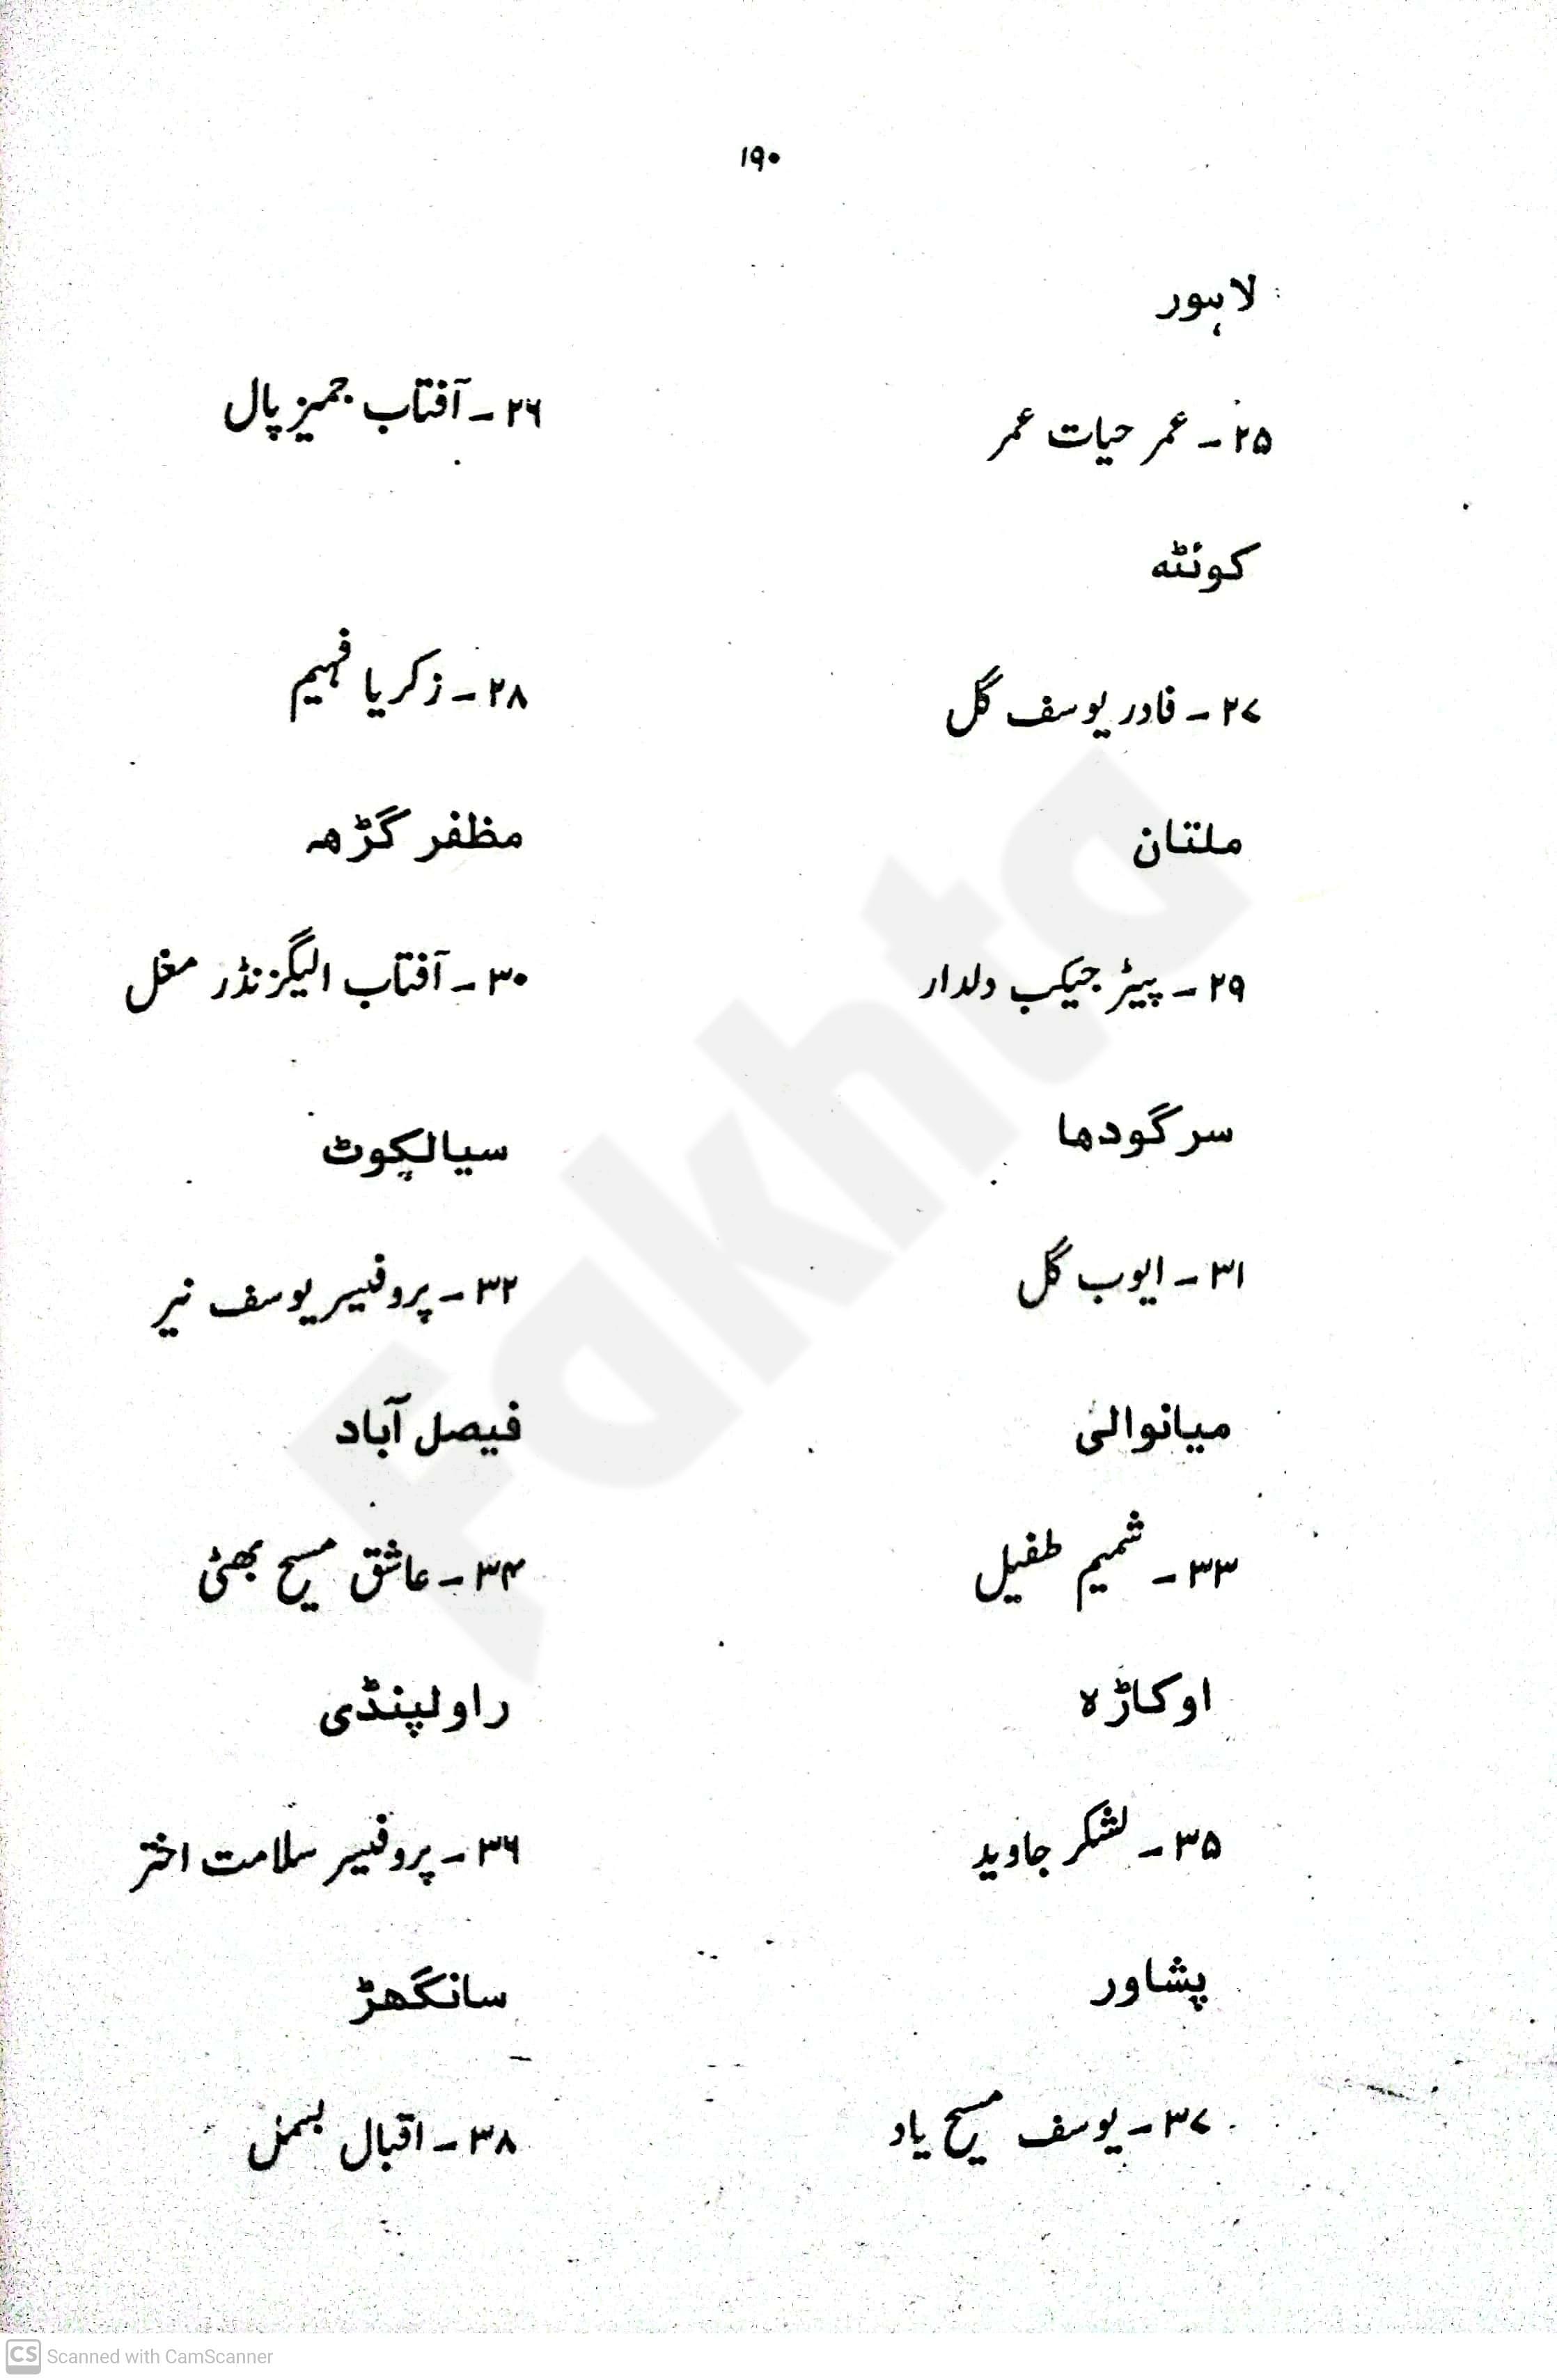 ۱۹۰
لاہور
۲۵ ـ عمر حیات عمر
۲۶ ـ آفتاب جمیز پال
کوئٹہ
۲۷ ـ فادر یوسف گل
۲۸ ـ زکریا فہیم
ملتان
مظفر گڑھ
۲۹ ـ پیٹر جیکب دلدار
۳۰ ـ آفتاب الیگزنڈر مغل
سرگودھا
سیالکوٹ
۳۱ ـ ایوب گل
۳۲ ـ پروفیسر یوسف نیر
میانوالی
فیصل آباد
۳۳ ـ شمیم طفیل
۳۴ ـ عاشق مسیح بھٹی
اوکاڑہ
راولپنڈی
۳۵ ـ لشکر جاوید
۳۶ ـ پروفیسر سلامت اختر
پشاور
سانگھڑ
۳۷ ـ یوسف مسیح یاد
۳۸ ـ اقبال بسمل
Fakhta
CS Scanned with CamScanner